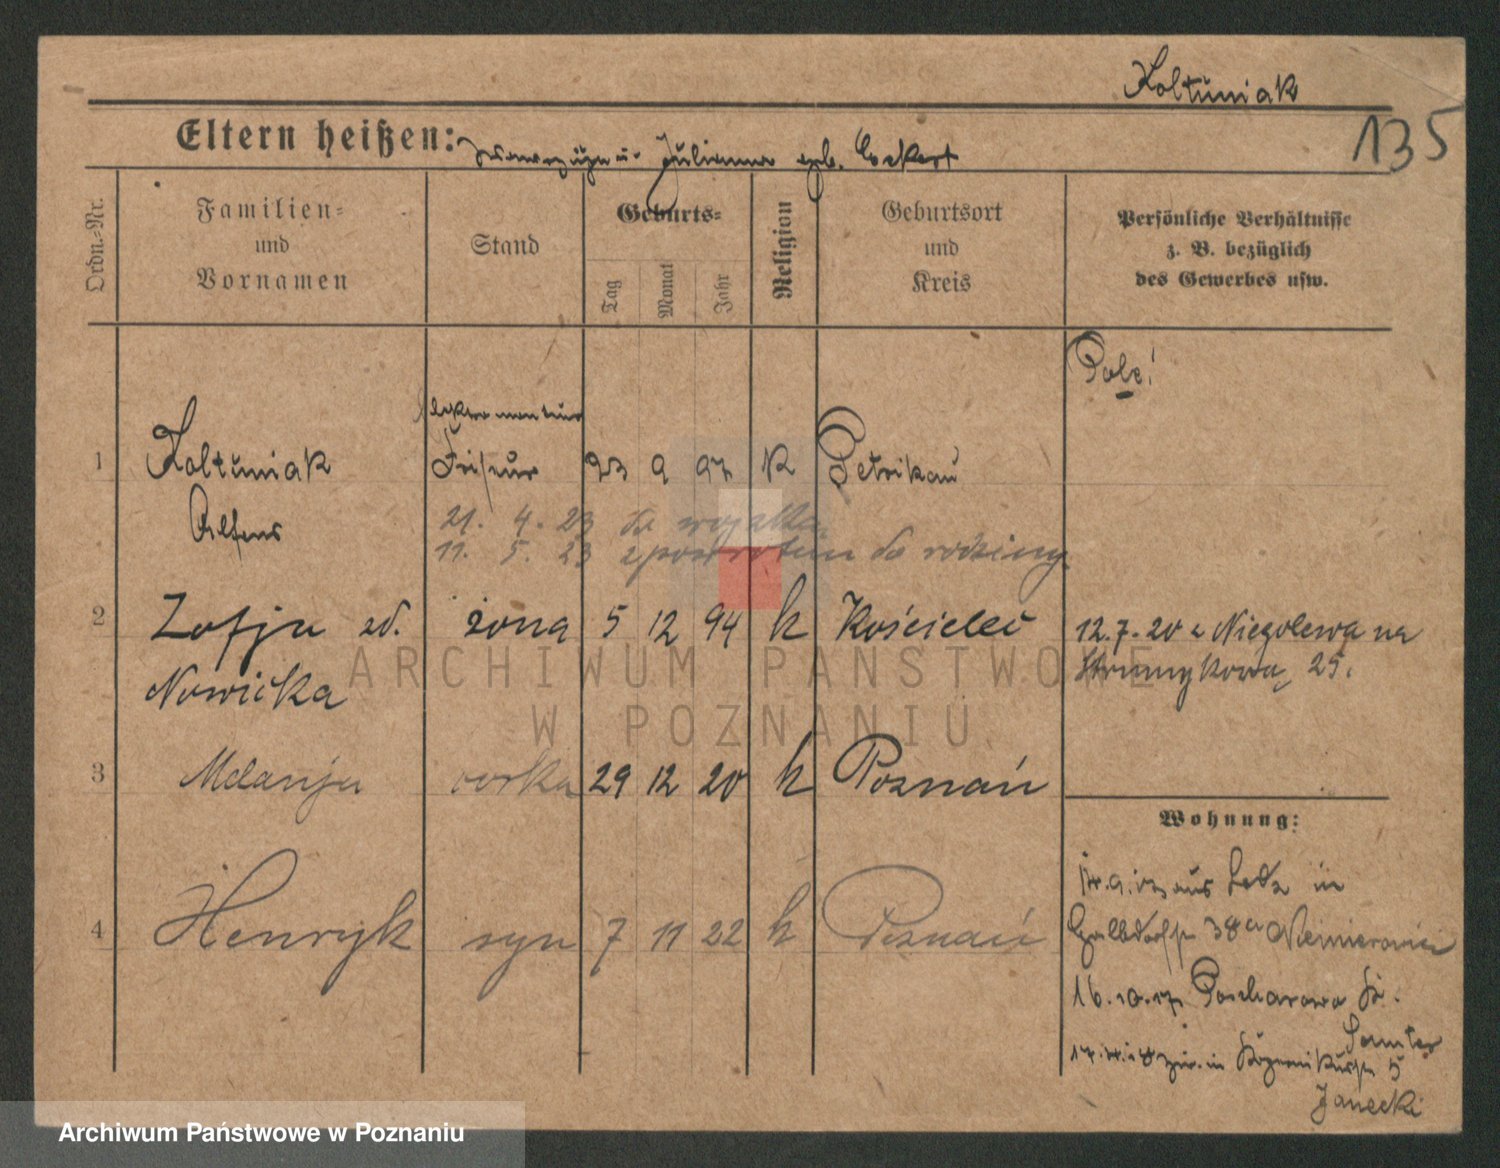 Koltuniak
135
Eltern heißen: u. Julianna geb. Eckert
Ordn.-Nr.
Familien-
und
Vornamen
Stand
Geburts-
Tag
Monat
Jahr
Religion
Geburtsort
und
Kreis
Persönliche Verhältnisse
z. B. bezüglich
des Gewerbes usw.
Pole!
1 Koltuniak Friseur 23 9 97 K Petrikau
Alfons
21. 4. 23 do wojska
11. 5. 23 z powrotem do rodziny
2 Zofja zd. żona 5 12 94 k Kościelec
Nowicka
12.7.20 z Niegolewa na
Strumykowa 25.
3 Melanja corka 29 12 20 k Poznań
4 Henryk syn 7 11 22 k Poznań
Wohnung:
aus Lodz in
38a Niemierowicz
16.10.17
Samter
in 5
Janecki
ARCHIWUM PAŃSTWOWE
W POZNANIU
Archiwum Państwowe w Poznaniu